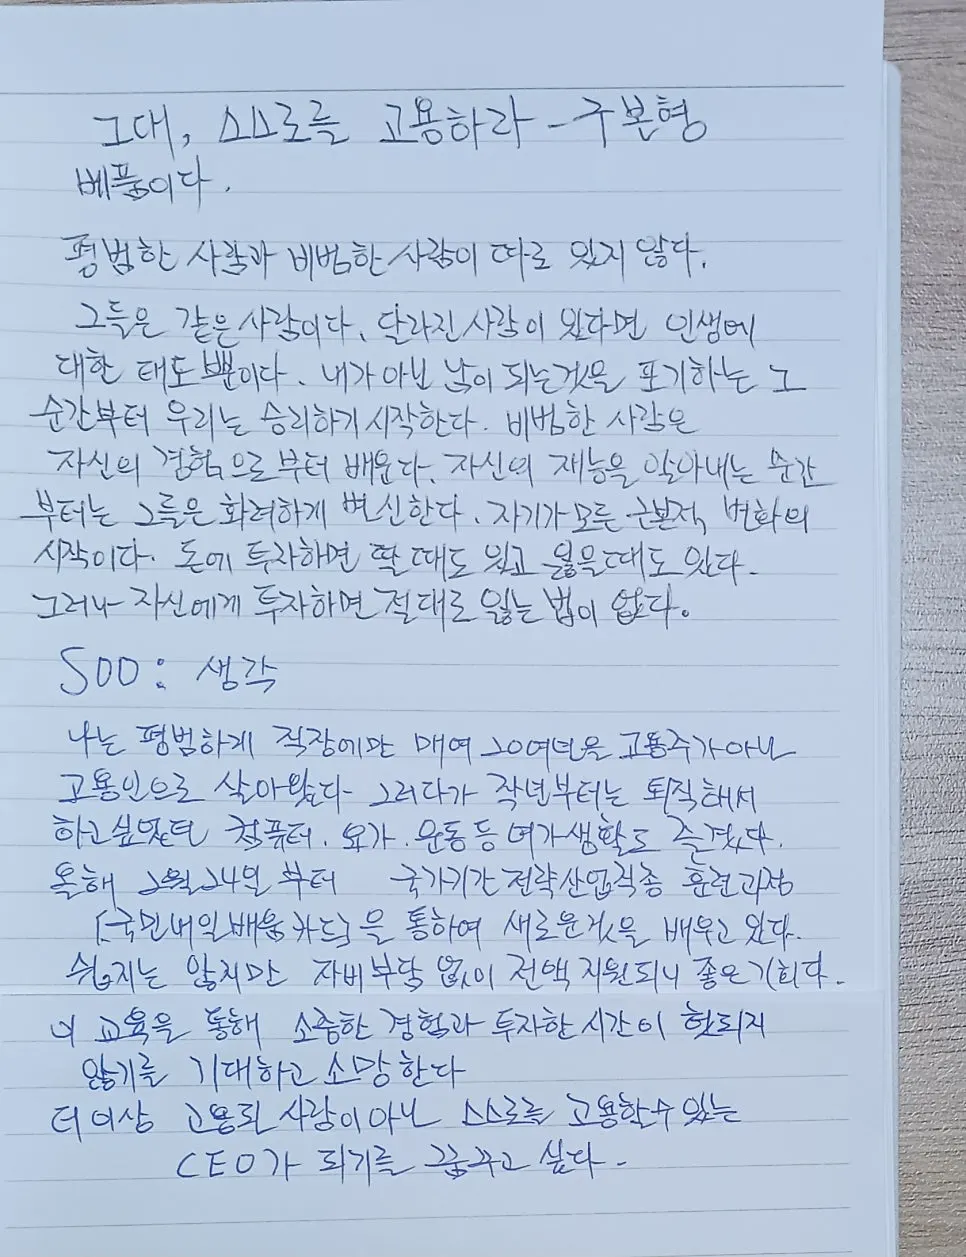 그대, 스스로를 고용하라 - 구본형
베품이다.
평범한 사람과 비범한 사람이 따로 있지 않다.
그들은 같은 사람이다. 달라진 사람이 있다면 인생에
대한 태도뿐이다. 내가 아닌 남이 되는것을 포기하는 그
순간부터 우리는 승리하기 시작한다. 비범한 사람은
자신의 경험으로부터 배운다. 자신의 재능을 알아내는 순간
부터는 그들은 화려하게 변신한다. 자기가 모든 근본적 변화의
시작이다. 돈에 투자하면 딸 때도 있고 잃을때도 있다.
그러나 자신에게 투자하면 절대로 잃는 법이 없다.
SOO : 생각
나는 평범하게 직장에만 매여 20여년을 고용주가 아닌
고용인으로 살아왔다. 그러다가 작년부터는 퇴직해서
하고싶었던 컴퓨터, 요가, 운동 등 여가생활도 즐겼다.
올해 2월 24일 부터 국가기간 전략산업직종 훈련과정
[국민내일배움카드]을 통하여 새로운것을 배우고 있다.
쉽지는 않지만 자비부담 없이 전액 지원되니 좋은 기회다.
이 교육을 통해 소중한 경험과 투자한 시간이 헛되지
않기를 기대하고 소망한다
더 이상 고용된 사람이 아닌 스스로를 고용할수 있는
CEO가 되기를 꿈꾸고 싶다.